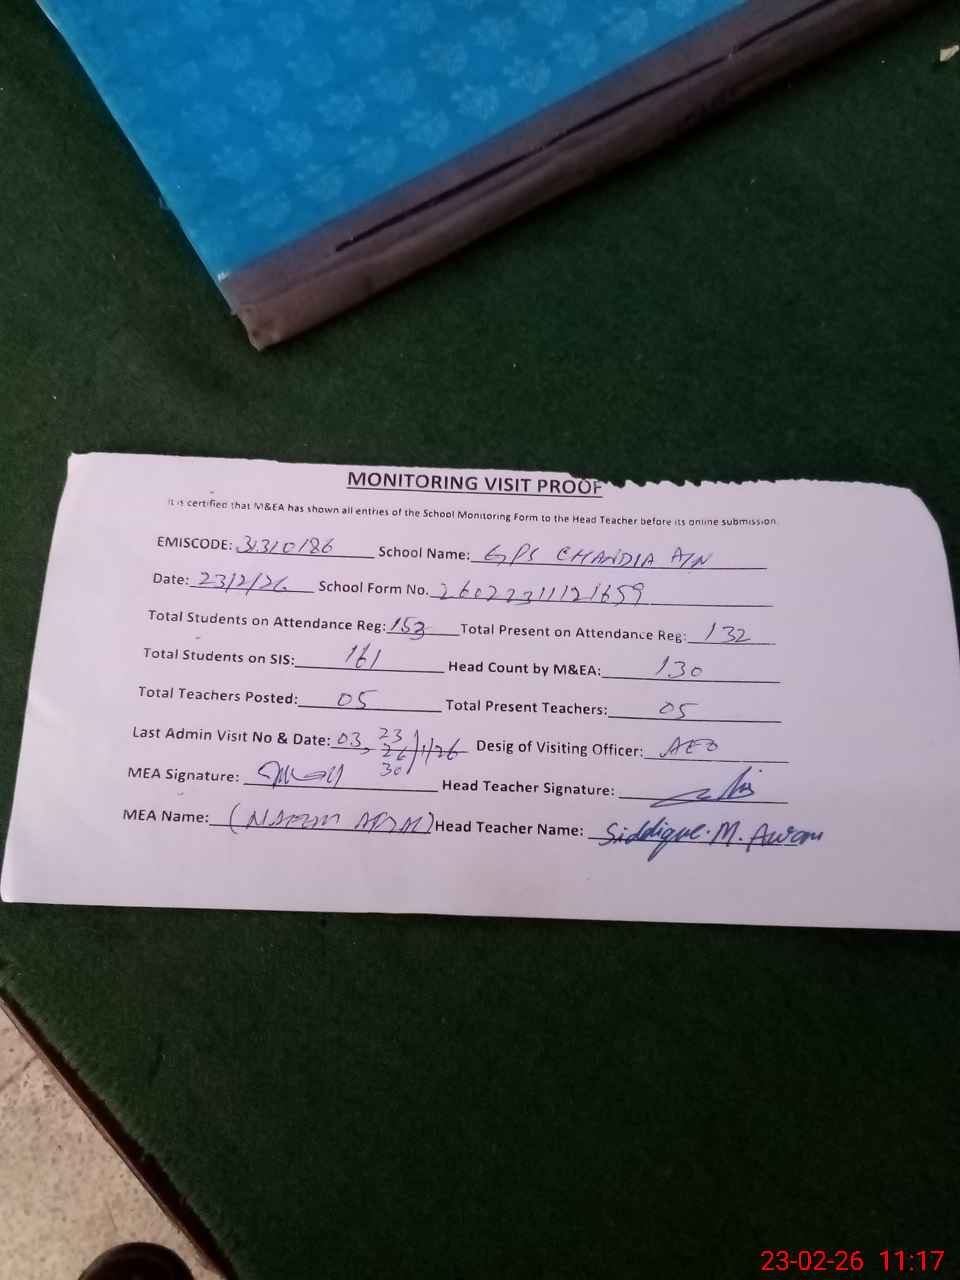 MONITORING VISIT PROOF
It is certified that M&EA has shown all entries of the School Monitoring Form to the Head Teacher before its online submission.
EMISCODE: 31310186 School Name: GPS CHANDIA A/N
Date: 23/2/26 School Form No. 26022311121659
Total Students on Attendance Reg: 153 Total Present on Attendance Reg: 132
Total Students on SIS: 161 Head Count by M&EA: 130
Total Teachers Posted: 05 Total Present Teachers: 05
Last Admin Visit No & Date: 03, 23 26 30 /1/26 Desig of Visiting Officer: AEO
MEA Signature: Head Teacher Signature:
MEA Name: Head Teacher Name: Siddique. M. Awan
23-02-26 11:17